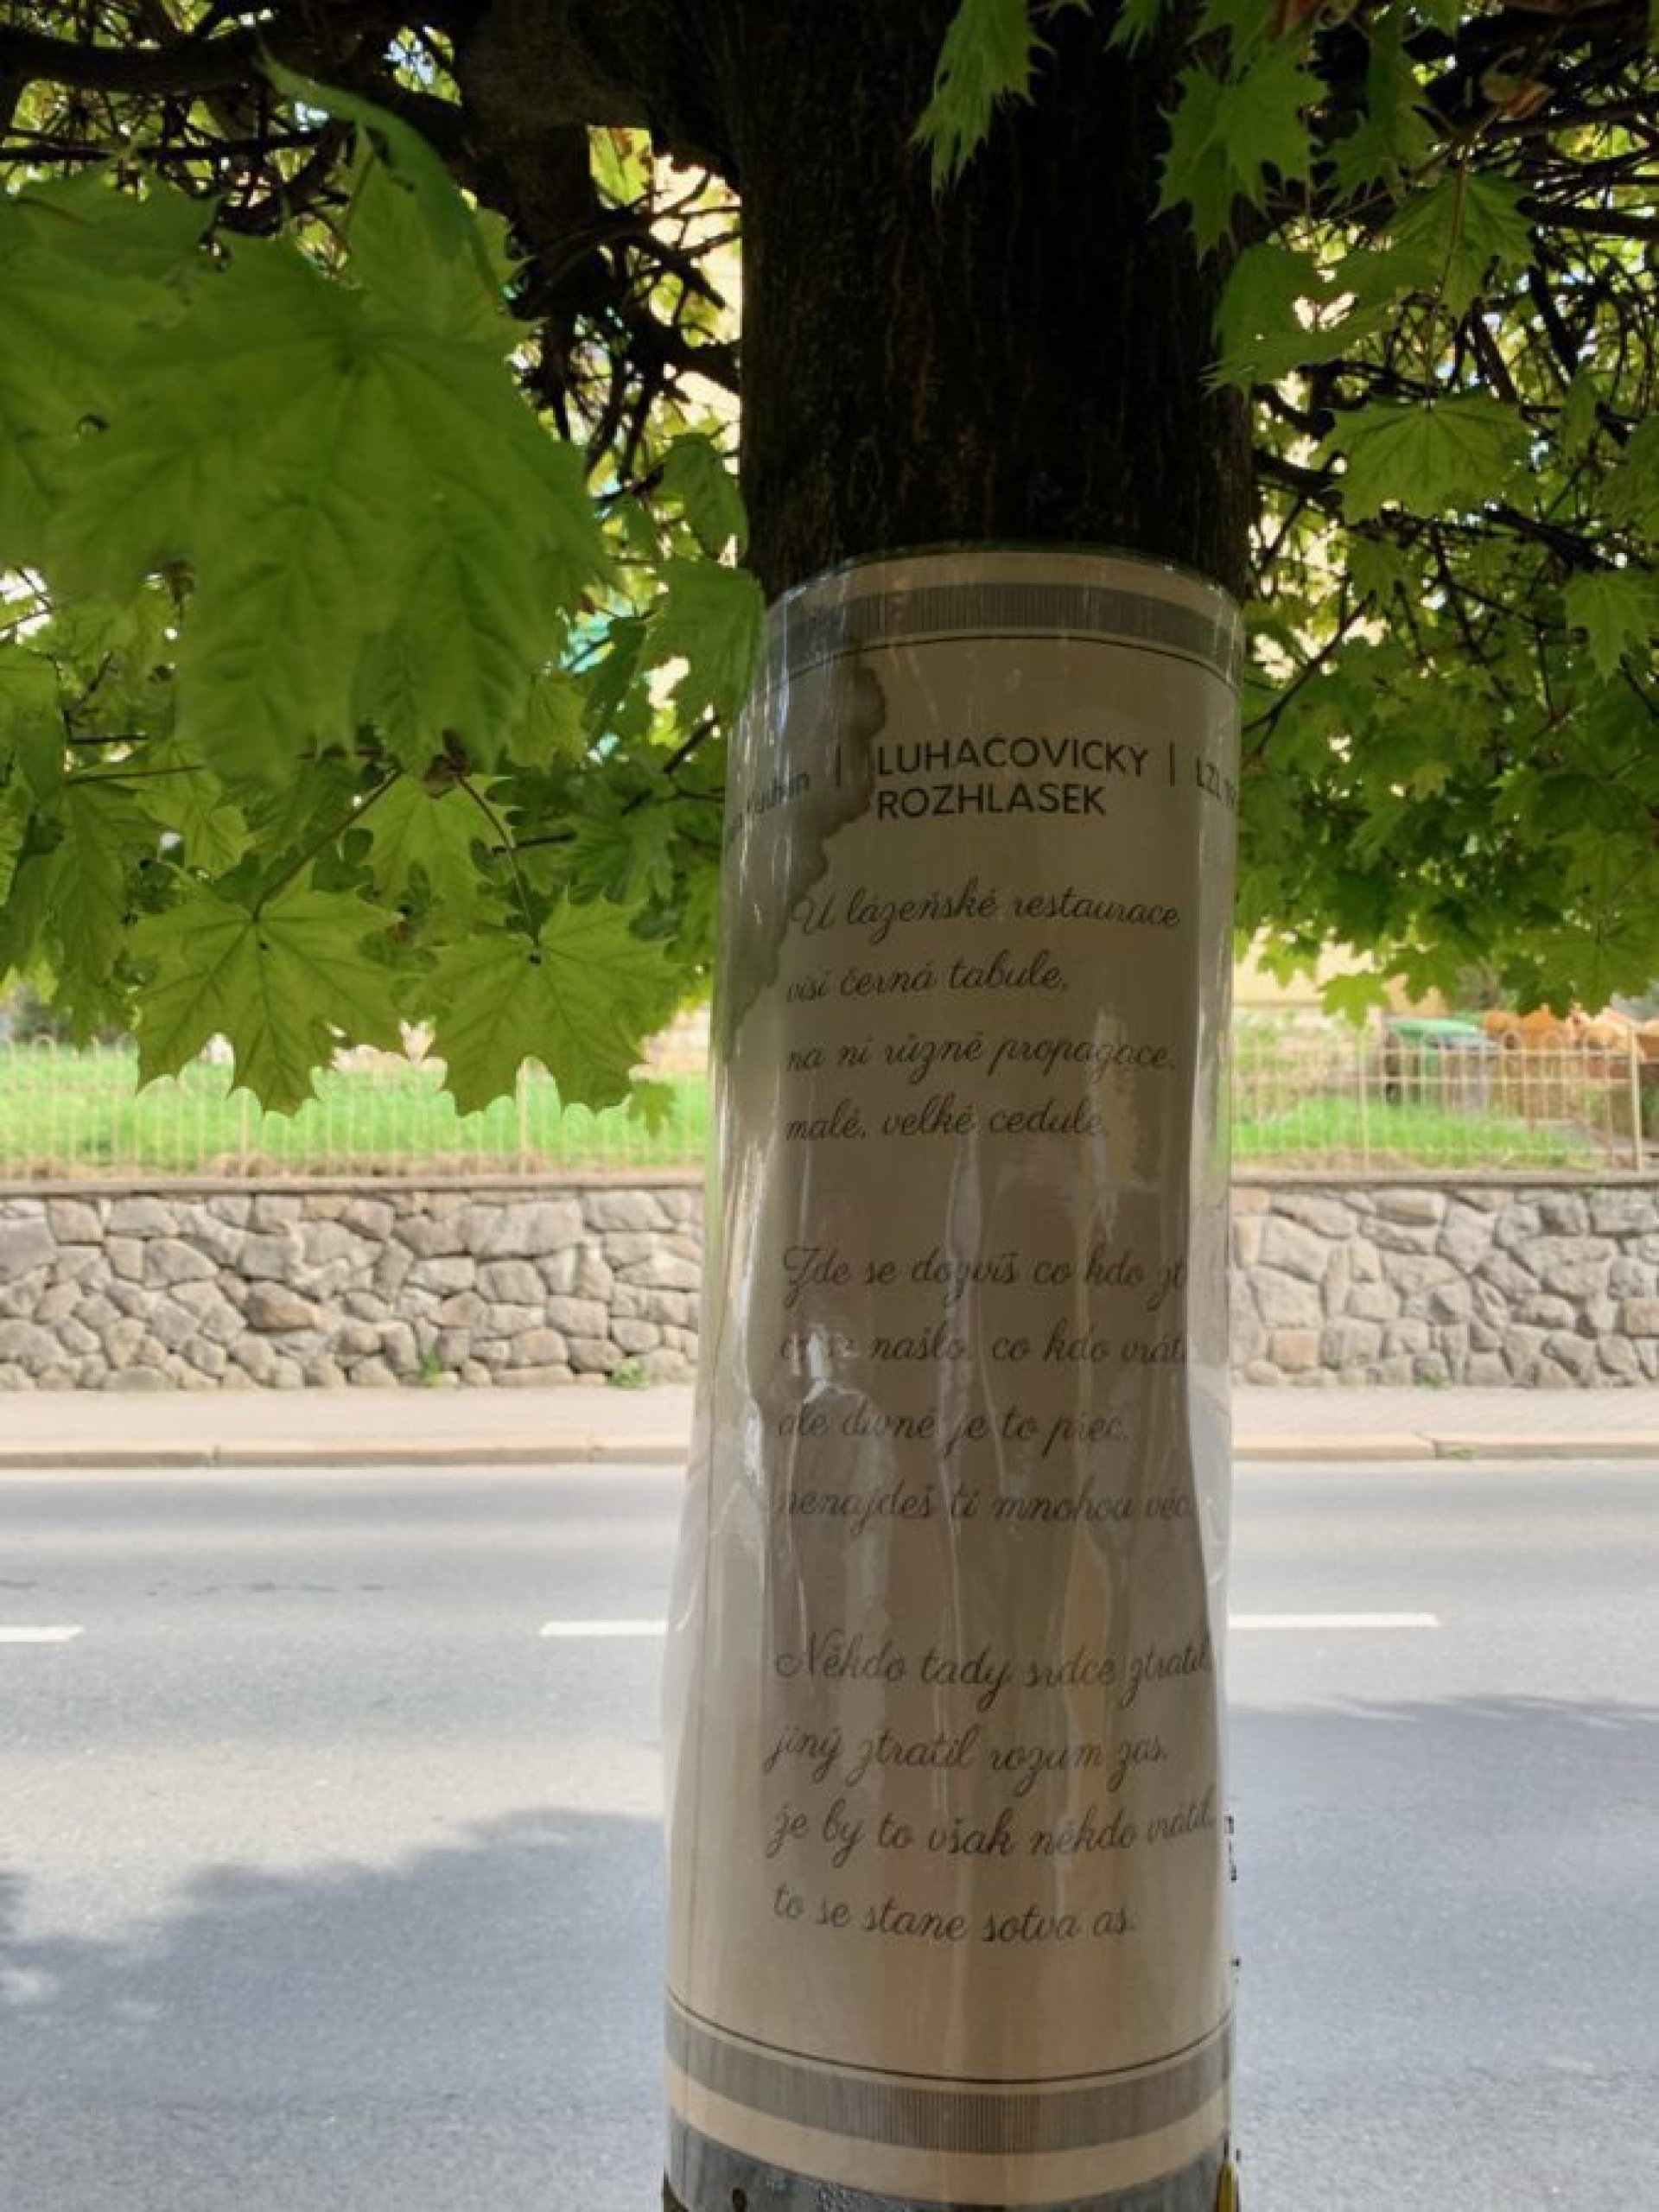 LUHAČOVICKÝ
ROZHLÁSEK
LZL
U lázeňské restaurace
visí černá tabule,
na ní různé propagace,
malé, velké cedule.
Zde se dozvíš co kdo
našlo, co kdo
ale divné je to přec,
nenajdeš tí mnohou
Někdo tady srdce ztratil,
jiný ztratil rozum zas,
že by to však někdo vrátil,
to se stane sotva as.